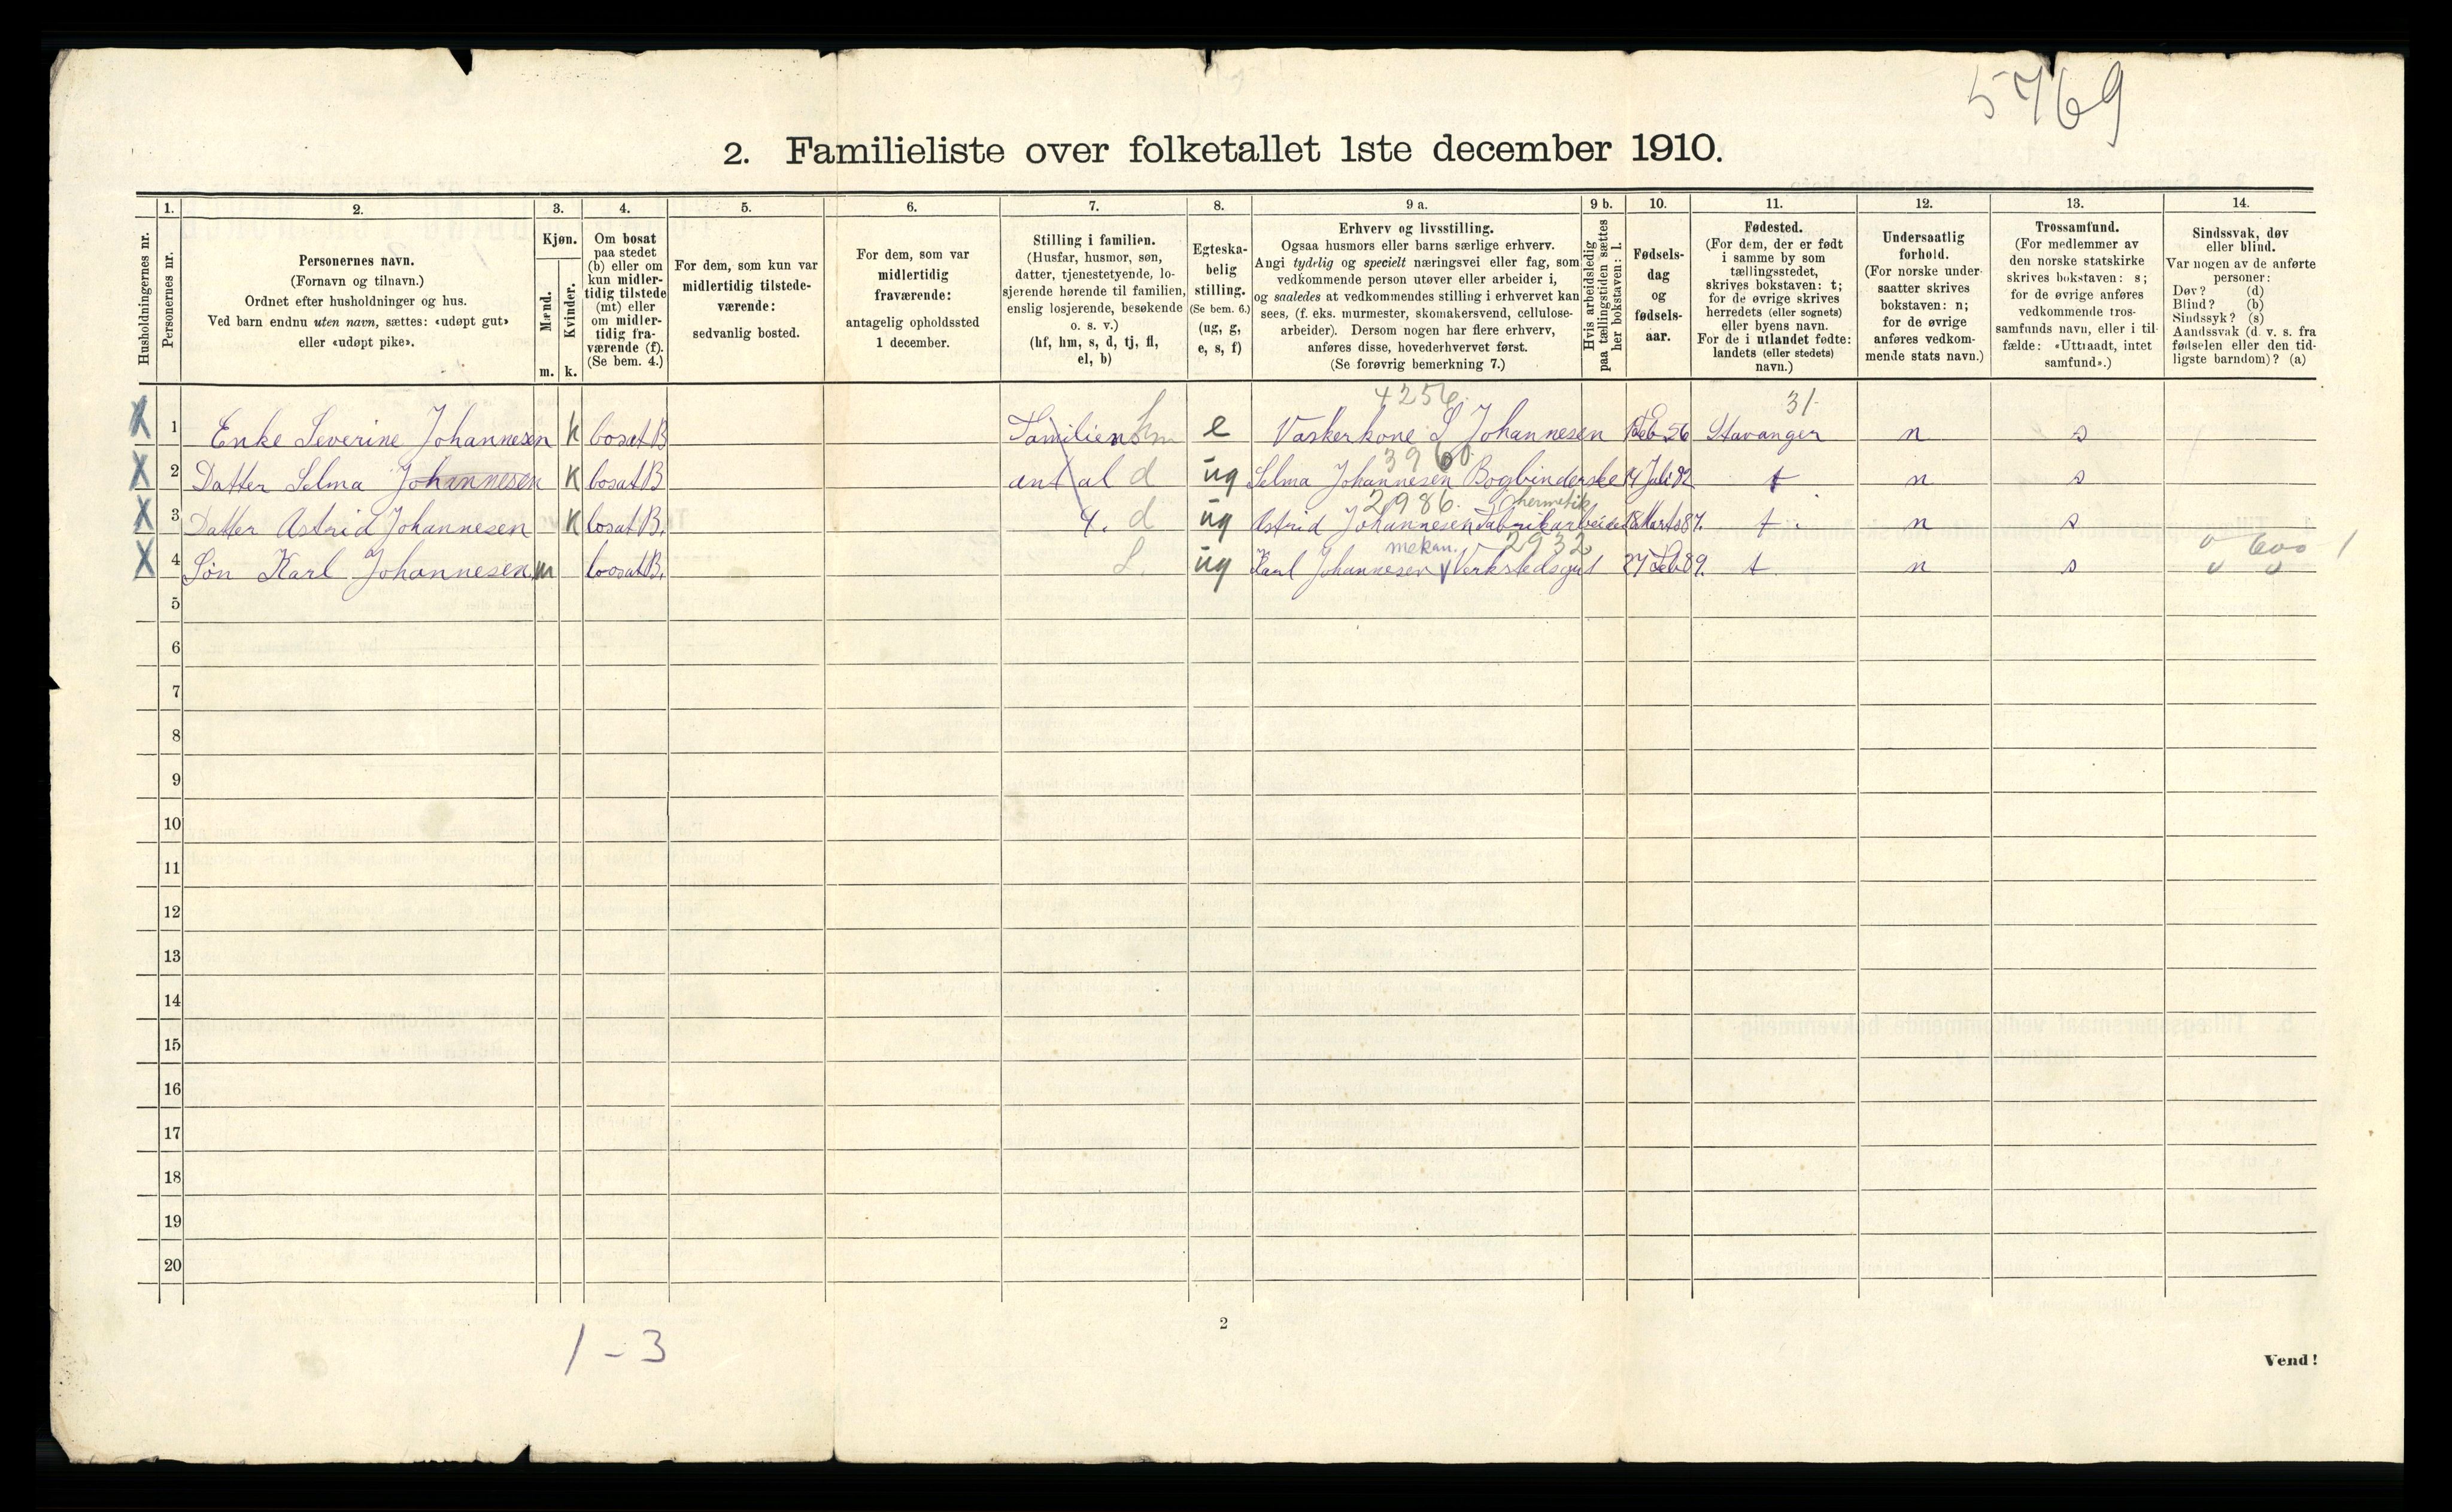 5769
2. Familieliste over folketallet 1ste december 1910.
Husholdningernes nr.
1.
Personernes nr.
2.
Personernes navn.
(Fornavn og tilnavn.)
Ordnet efter husholdninger og hus.
Ved barn endnu uten navn, sættes: «udøpt gut»
eller «udøpt pike».
3.
Kjøn.
Mænd.
Kvinder.
m. k.
4.
Om bosat
paa stedet
(b) eller om
kun midler-
tidig tilstede
(mt) eller
om midler-
tidig fra-
værende (f).
(Se bem. 4.)
5.
For dem, som kun var
midlertidig tilstede-
værende:
sedvanlig bosted.
6.
For dem, som var
midlertidig
fraværende:
antagelig opholdssted
1 december.
7.
Stilling i familien.
(Husfar, husmor, søn,
datter, tjenestetyende, lo-
sjerende hørende til familien,
enslig losjerende, besøkende
o. s. v.)
(hf, hm, s, d, tj, fl,
el, b)
8.
Egteska-
belig
stilling.
(Se bem. 6.)
(ug, g,
e, s, f)
9 a.
Erhverv og livsstilling.
Ogsaa husmors eller barns særlige erhverv.
Angi tydelig og specielt næringsvei eller fag, som
vedkommende person utøver eller arbeider i,
og saaledes at vedkommendes stilling i erhvervet kan
sees, (f. eks. murmester, skomakersvend, cellulose-
arbeider). Dersom nogen har flere erhverv,
anføres disse, hovederhvervet først.
(Se forøvrig bemerkning 7.)
9 b.
Hvis arbeidsledig
paa tællingstiden sættes
her bokstaven: l.
10.
Fødsels-
dag
og
fødsels-
aar.
11.
Fødested.
(For dem, der er født
i samme by som
tællingsstedet,
skrives bokstaven: t;
for de øvrige skrives
herredets (eller sognets)
eller byens navn.
For de i utlandet fødte:
landets (eller stedets)
navn.)
12.
Undersaatlig
forhold.
(For norske under-
saatter skrives
bokstaven: n;
for de øvrige
anføres vedkom-
mende stats navn.)
13.
Trossamfund.
(For medlemmer av
den norske statskirke
skrives bokstaven: s;
for de øvrige anføres
vedkommende tros-
samfunds navn, eller i til-
fælde: «Uttraadt, intet
samfund».)
14.
Sindssvak, døv
eller blind.
Var nogen av de anførte
personer:
Døv? (d)
Blind? (b)
Sindssyk? (s)
Aandssvak (d. v. s. fra
fødselen eller den tid-
ligste barndom)? (a)
4256. 31.
X 1 Enke Severine Johannesen k bosat B Familiens hm e Vaskerkone S Johannesen Feb 56 Stavanger n s
3960.
X 2 Datter Selma Johannesen K bosat B antal d ug Selma Johannesen Bogbinderske 14 Juli 82 t n s
2986. hermetik
X 3 Datter Astrid Johannesen K bosat B. 4. d ug Astrid Johannesen Fabrikarbeider 18 Marts 87. t. n s
mekan. 2932 600 1
X 4 Søn Karl Johannesen. m bosat B. S. ug Karl Johannesen Verkstedsgut 27 Feb 89. t. n s
5
6
7
8
9
10
11
12
13
14
15
16
17
18
19
20
1 - 3
2
Vend!